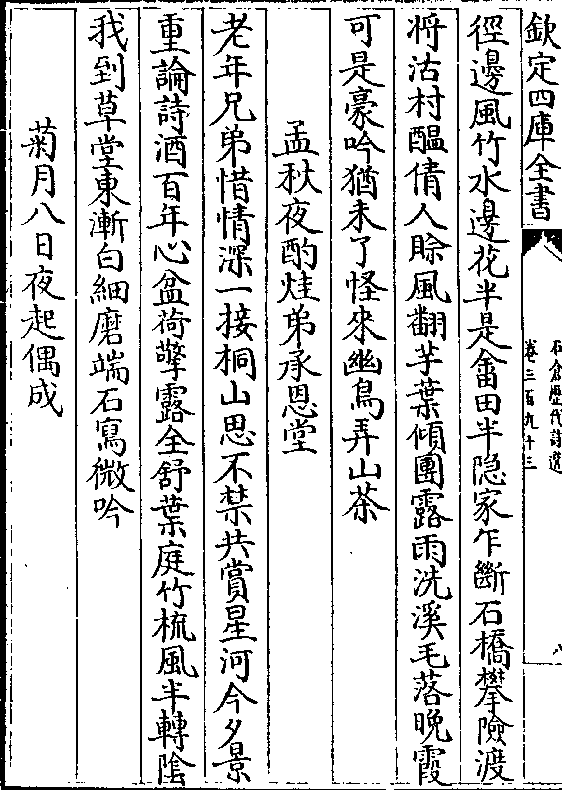 欽定四庫全書
石倉歷代詩選
卷三百九十三
八
徑邊風竹水邊花半是畬田半隐家乍斷石橋攀險渡
将沽村醞倩人賖風翻芋葉傾團露雨洗溪毛落晚霞
可是豪吟猶未了怪來幽鳥弄山茶
孟秋夜酌烓弟承恩堂
老年兄弟惜情深一接桐山思不禁共賞星河今夕景
重論詩酒百年心盆荷擎露全舒葉庭竹梳風半轉陰
我到草堂東漸白細磨端石寫微吟
菊月八日夜起偶成